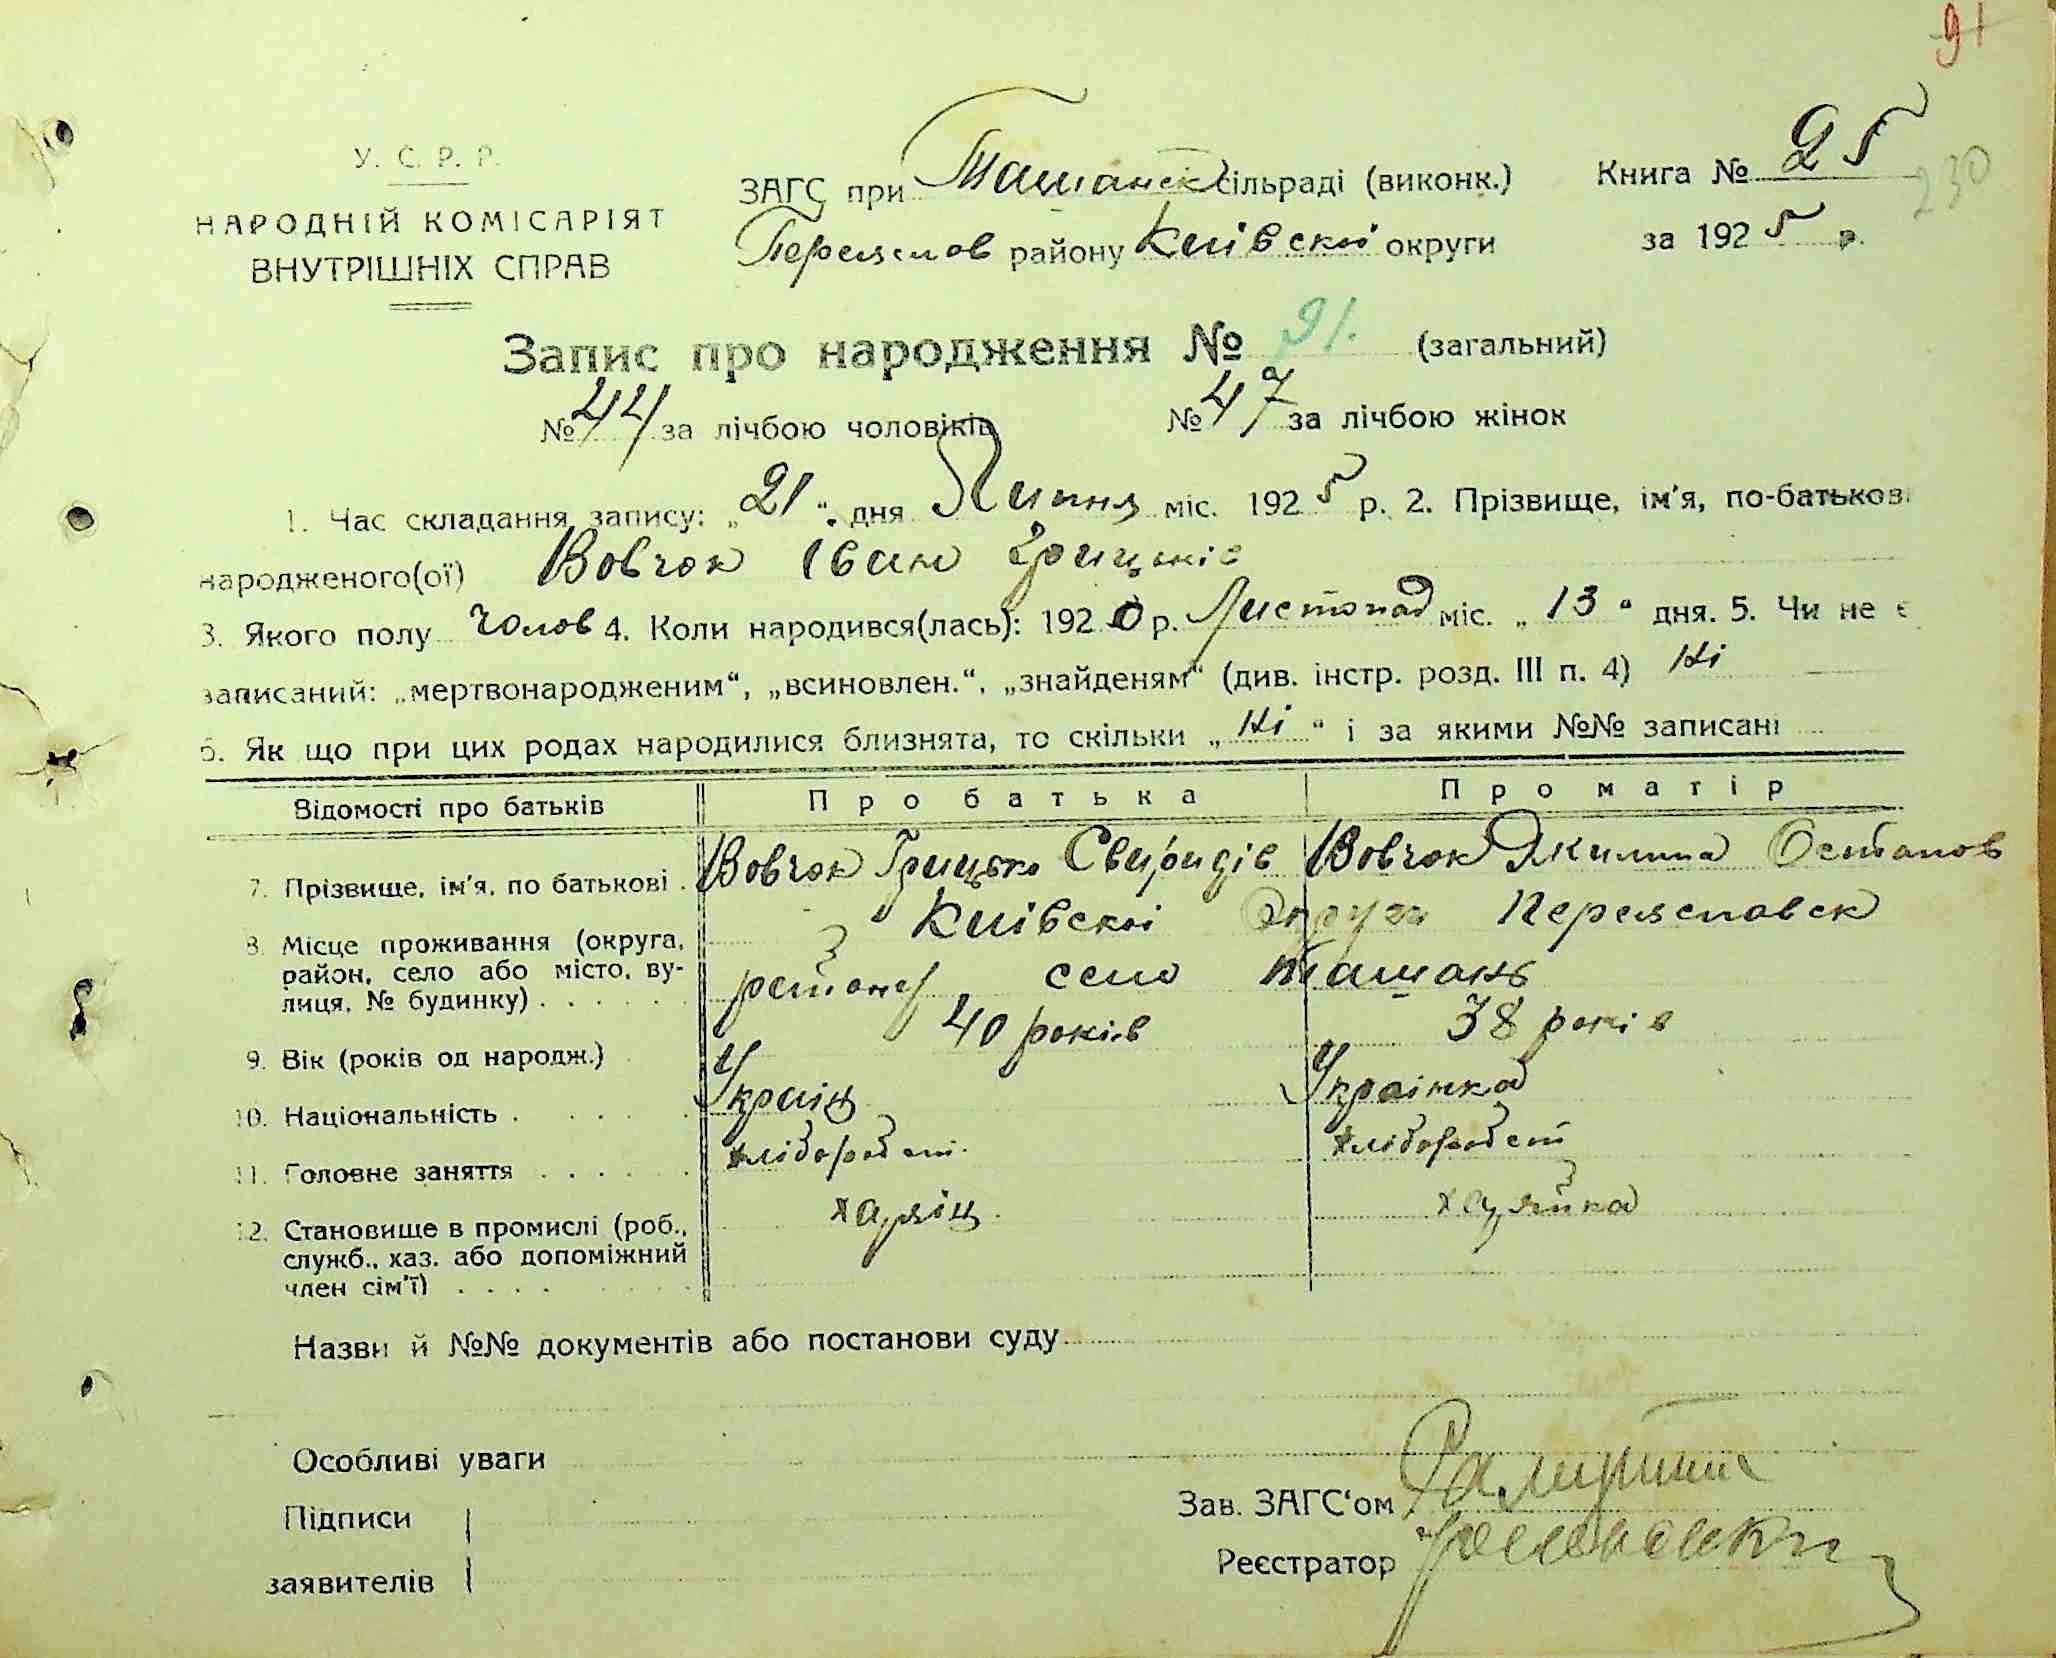 91
У. С. Р. Р.
НАРОДНІЙ КОМІСАРІЯТ
ВНУТРІШНІХ СПРАВ
ЗАГС при Ташанск сільраді (виконк.)
Переяслов району Київскої округи
Книга № 25
230
за 1925 р.
Запис про народження № 91. (загальний)
№ 44 за лічбою чоловіків № 47 за лічбою жінок
1. Час складання запису: „21“ дня Липня міс. 1925 р. 2. Прізвище, ім'я, по-батькові
народженого(ої) Вовчок Іван Грицьків
3. Якого полу Чолов 4. Коли народився(лась): 1920 р. Листопад міс. „13“ дня. 5. Чи не є
записаний: „мертвонародженим“, „всиновлен.“, „знайденям“ (див. інстр. розд. III п. 4) Ні
6. Як що при цих родах народилися близнята, то скільки „Ні“ і за якими №№ записані
Відомості про батьків Про батька Про матір
7. Прізвище, ім'я, по батькові . Вовчок Грицько Свиридів Вовчок Якилина Остапов
8. Місце проживання (округа, район, село або місто, вулиця, № будинку) . . . . . . Київскої Округи Переясловск
району село Ташань
9. Вік (років од народж.) 40 років 38 років
10. Національність . . . . . . Украіц Украінка
11. Головне заняття . . . . . . хлібороб ст. хлібороб ст
12. Становище в промислі (роб., служб., хаз. або допоміжний член сім'ї) . . . . . . хазяїц. хазяйка
Назви й №№ документів або постанови суду
Особливі уваги
Підписи
заявителів
Зав. ЗАГС‘ом
Реєстратор